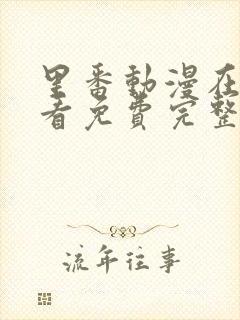 里番動漫在
看免費完整
流年往事